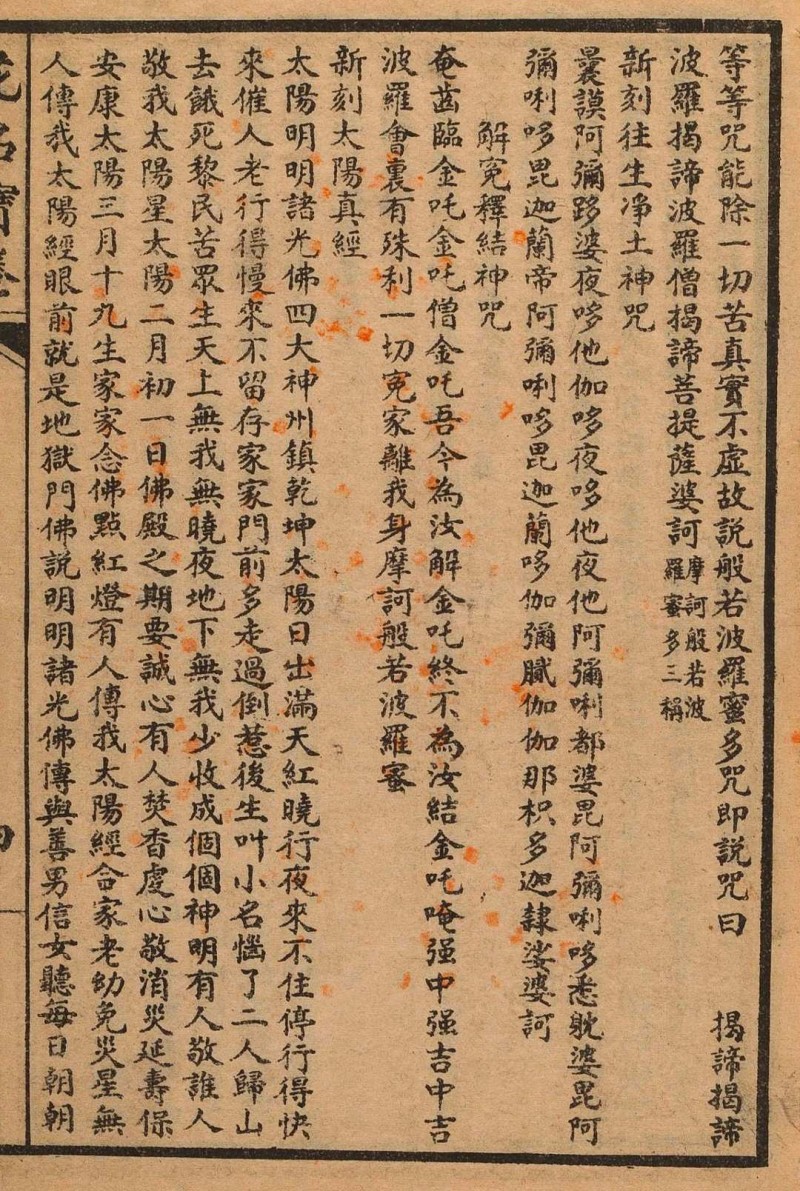 等等咒能除一切苦真實不虛故説般若波羅蜜多咒即説咒曰 揭諦揭諦
波羅揭諦波羅僧揭諦菩提薩婆訶 摩訶般若波羅蜜多三稱
新刻往生净土神咒
曩謨阿彌跢婆夜哆他伽哆夜哆他夜他阿彌唎都婆毘阿彌唎哆悉躭婆毘阿
彌唎哆毘迦蘭帝阿彌唎哆毘迦蘭哆伽彌膩伽伽那枳多迦隸娑婆訶
解冤釋結神咒
奄齒臨金吒金吒僧金吒吾今為汝解金吒終不為汝結金吒唵强中强吉中吉
波羅會裏有殊利一切冤家離我身摩訶般若波羅蜜
新刻太陽真經
太陽明明諸光佛四大神州鎮乾坤太陽日出滿天紅曉行夜來不住停行得快
來催人老行得慢來不留存家家門前多走過倒惹後生叫小名惱了二人歸山
去餓死黎民苦眾生天上無我無曉夜地下無我少收成個個神明有人敬誰人
敬我太陽星太陽二月初一日佛殿之期要誠心有人焚香虔心敬消災延壽保
安康太陽三月十九生家家念佛點紅燈有人傳我太陽經合家老幼免災星無
人傳我太陽經眼前就是地獄門佛説明明諸光佛傳與善男信女聽每日朝朝